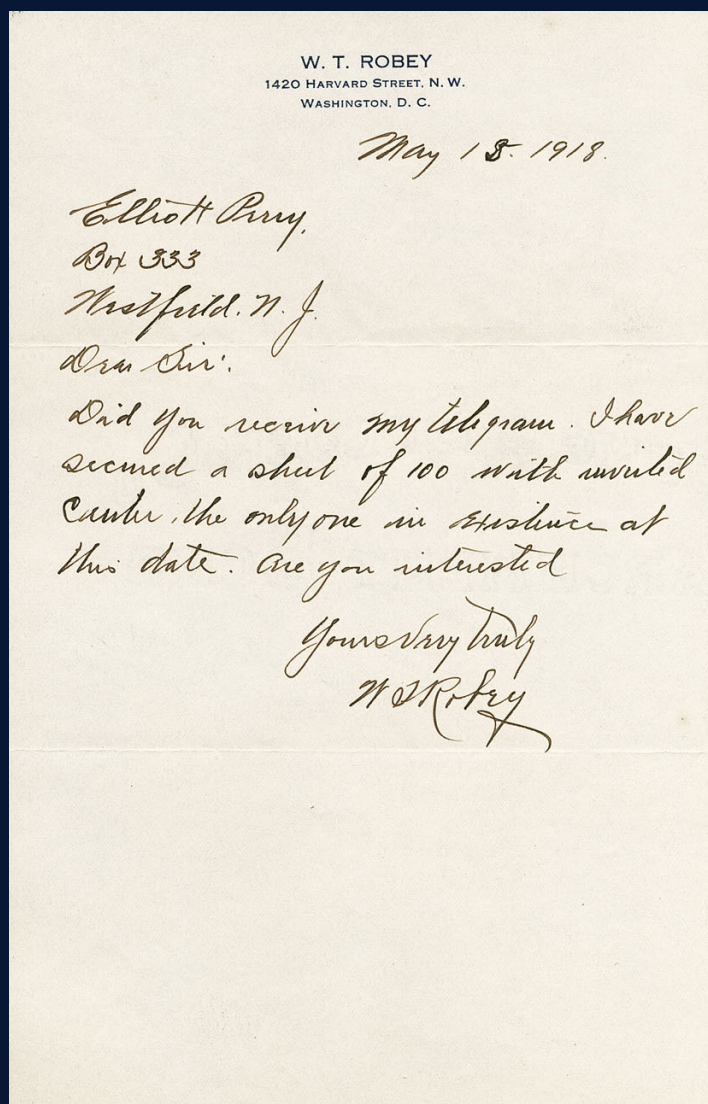 W. T. ROBEY
1420 HARVARD STREET, N. W.
WASHINGTON, D. C.
May 15. 1918.
Elliott Perry,
Box 333
Westfield. N. J.
Dear Sir:
Did you receive my telegram. I have
secured a sheet of 100 with inverted
Center, the only one in existence at
this date. are you interested
Yours Very truly
W T Robey